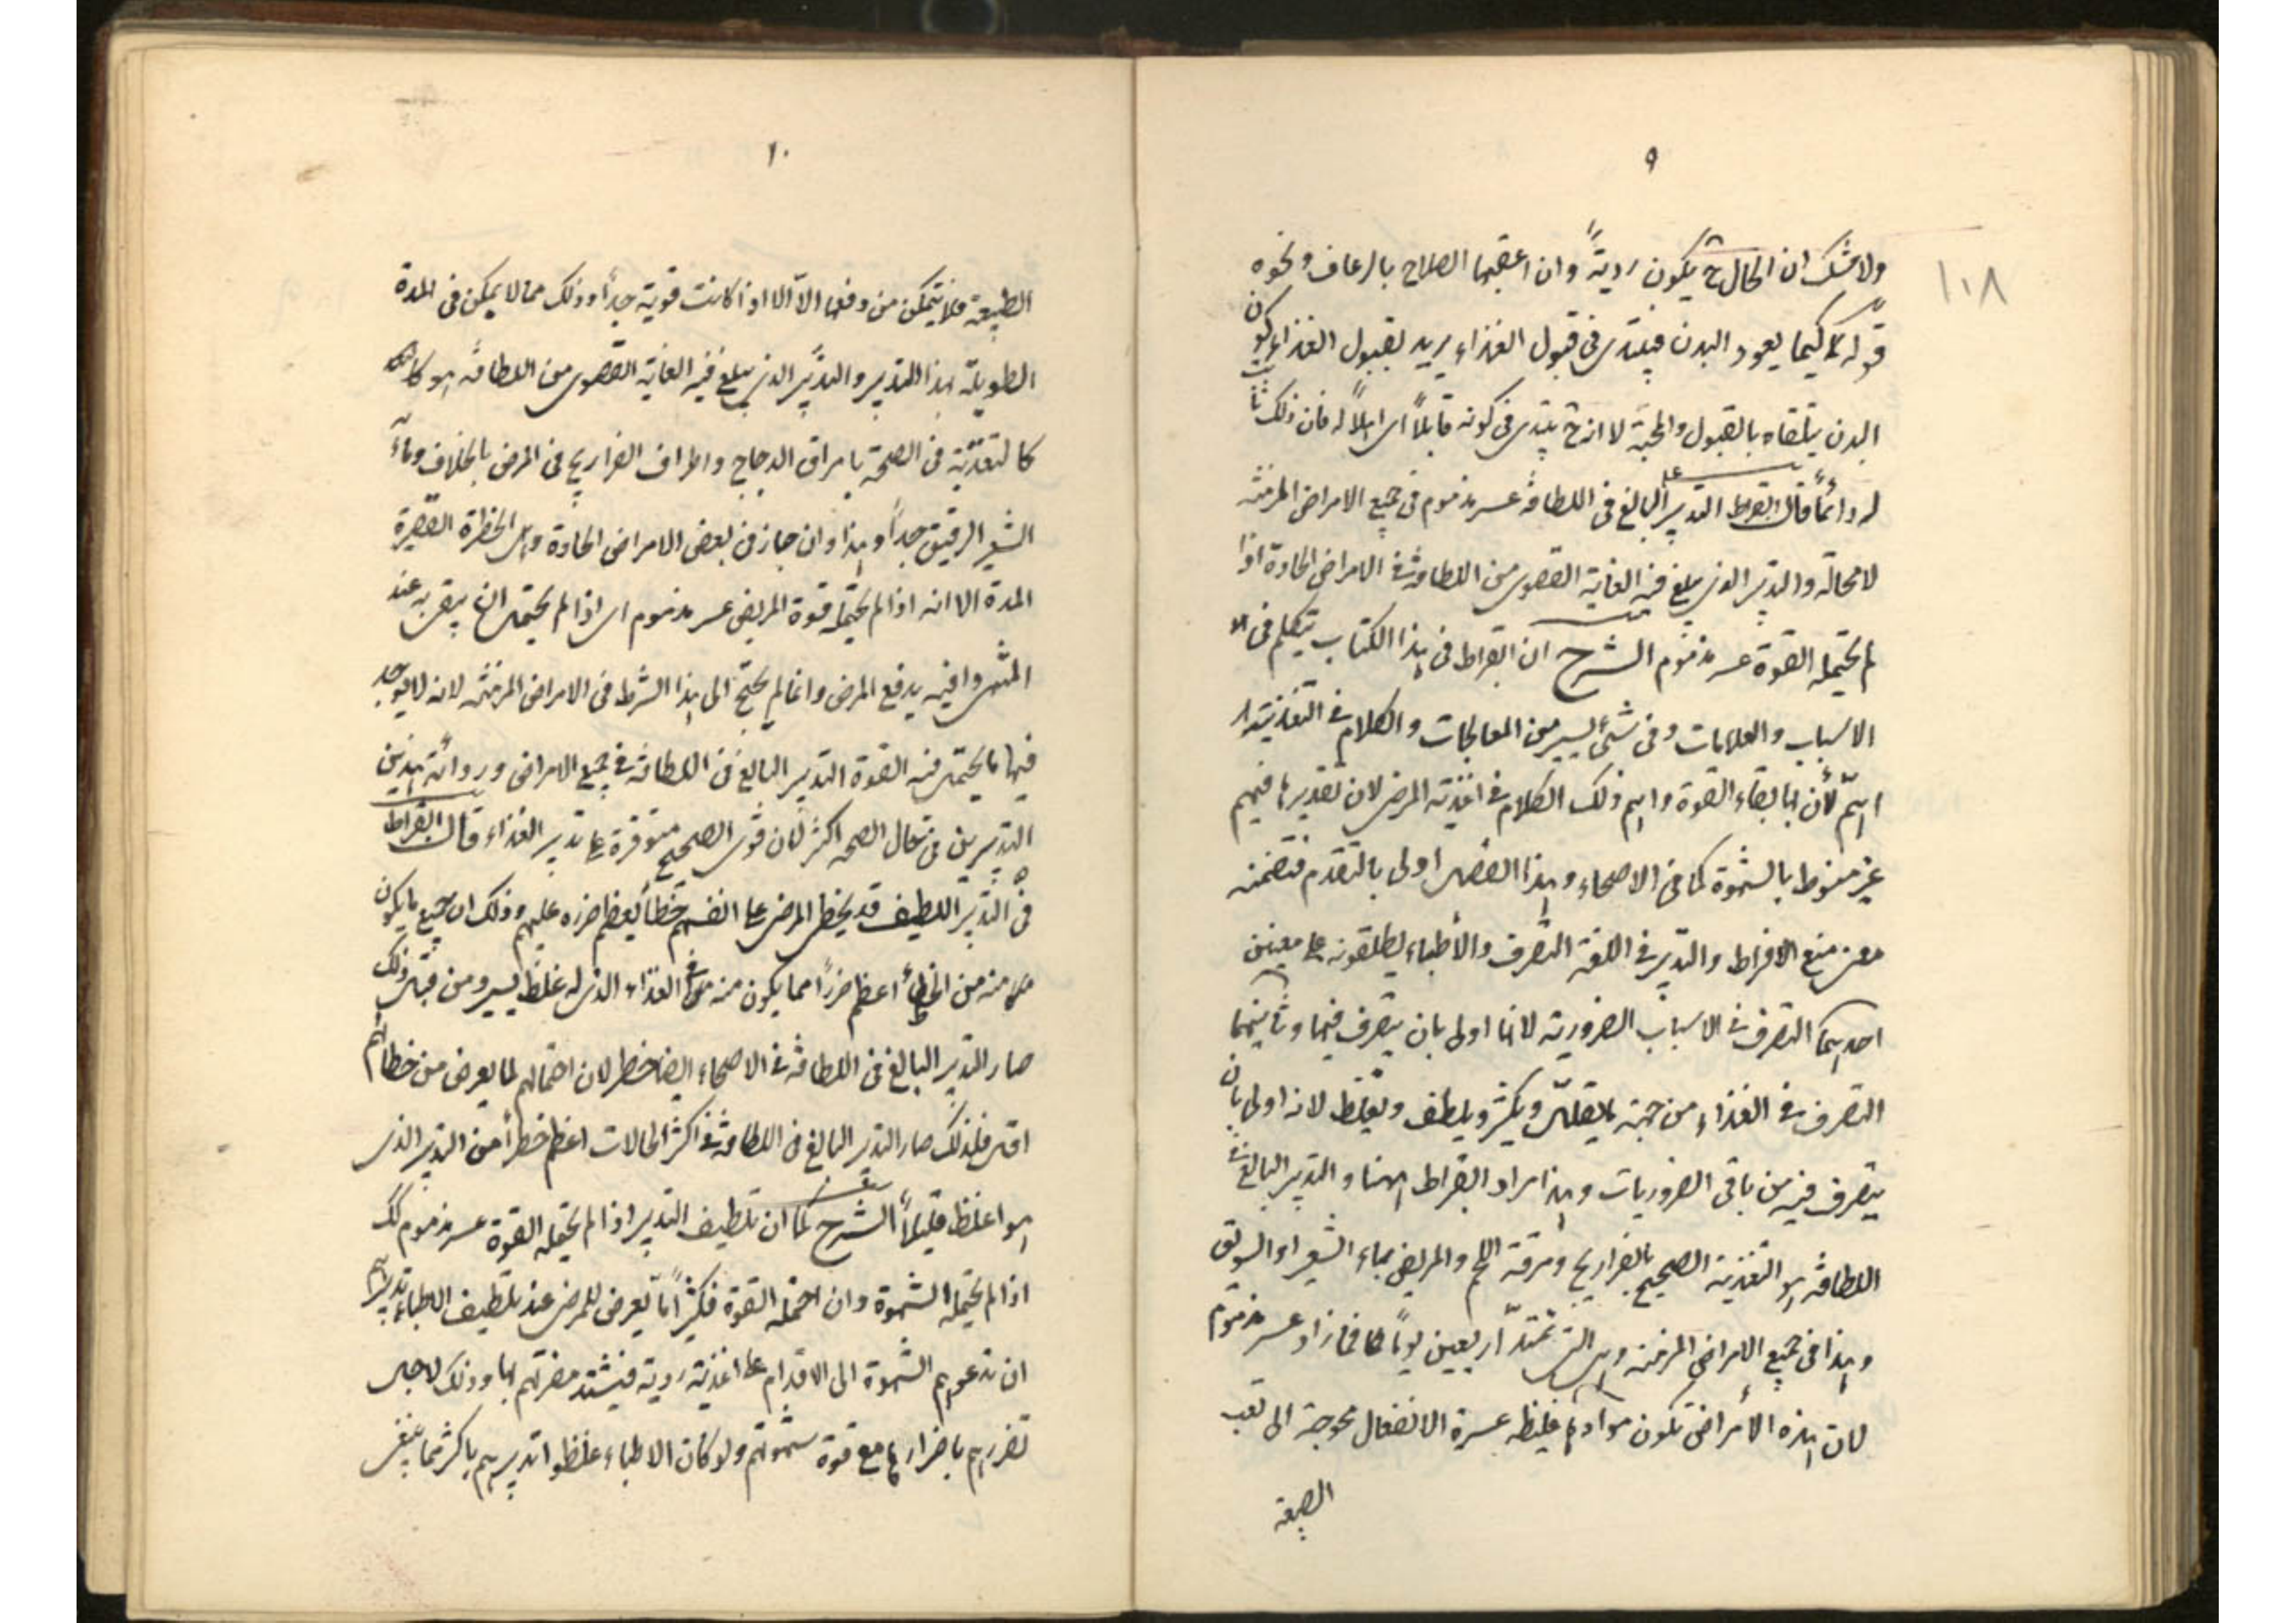 ٩
١٠٨
ولا شك ان الحال ح يكون ردية وان اعقبها الصلاح بالرعاف ونحوه
قوله كيما يعود البدن فيبتدى فى قبول الغذاء يريد بقبول الغذاء كون
البدن يتلقاه بالقبول والمحبة لا انه ح يبتدى فى كونه قابلاً اى اهلاً له فان ذلك ثابت
له دائماً قال ابقراط التدبير البالغ فى اللطافة عسر مذموم فى جميع الامراض المزمنة
لا محالة والتدبير الذى يبلغ فيه الغاية القصوى من اللطافة فى الامراض الحادة اذا
لم تحتمله القوة عسر مذموم الشرح ان ابقراط فى هذا الكتاب يتكلم فى
الاسباب والعلامات وفى شئ يسير من المعالجات والكلام فى التغذية
اهم لأن بها بقاء القوة واهم ذلك الكلام فى اغذية المرضى لان تقديرها فيهم
غير منوط بالشهوة كما فى الاصحاء وهذا الفصل اولى بالتقدم فتضمنه
معنى منع الافراط والتدبير فى اللغة التصرف والأطباء يطلقونه على معنيين
احدهما التصرف فى الاسباب الضرورية لانها اولى بان يتصرف فيها وثانيهما
التصرف فى الغذاء من جهة ما يقلل ويكثر ويلطف ويغلظ لانه اولى بان
يتصرف فيه من باقى الضروريات وهذا مراد ابقراط ههنا والتدبير البالغ فى
اللطافة هو التغذية الصحيح بالفراريج ومرقة اللحم والمريض بماء الشعير او السويق
وهذا فى جميع الامراض المزمنة وهى التى تمتد اربعين يوماً فما زاد عسر مذموم
لان هذه الأمراض تكون موادها غليظة عسرة الانفعال محوجة الى تعب
١٠
الطبيعة فلا يتمكن من دفعها الا اذا كانت قوية جداً وذلك مما لا يمكن فى المدة
الطويلة هذا التدبير والتدبير الذى يبلغ فيه الغاية القصوى من اللطافة هو
كالتغذية فى الصحة بامراق الدجاج واطراف الفراريج فى المرض بالجلاب وماء
الشعير الرقيق جداً وهذا وان جاز فى بعض الامراض الحادة وهى الخطرة القصيرة
المدة الا انه اذا لم تحتمله قوة المريض عسر مذموم اى اذا لم يحتمل ان يبقى به عند
المنتهى وافية يدفع المرض وانما لم يحتج الى هذا الشرط فى الامراض المزمنة لانه لا يوجد
فيها ما يحتمل فيه القوة التدبير البالغ فى اللطافة فى جميع الامراض وردائة هذين
التدبيرين فى حال الصحة اكثر لان قوى الصحيح متوفرة على تدبير الغذاء قال ابقراط
فى التدبير اللطيف قد يخطى المرضى على انفسهم خطأ يعظم ضرره عليهم وذلك ان جميع ما يكون
منه من الخطأ اعظم ضرراً مما يكون منه فى الغذاء الذى له غلظ يسير ومن قبل ذلك
صار التدبير البالغ فى اللطافة فى الاصحاء ايضا خطر لان احتمالهم لما يعرض من خطائهم
اقل فلذلك صار التدبير البالغ فى اللطافة فى اكثر الحالات اعظم خطراً من التدبير الذى
هو اغلظ قليلاً الشرح كما ان تلطيف التدبير اذا لم تحتمله القوة عسر مذموم كك
اذا لم تحتمله الشهوة وان احتملته القوة فكثيراً ما يعرض للمرضى عند تلطيف الاطباء تدبيرهم
ان تدعوهم الشهوة الى الاقدام على اغذية ردية فيشتد مضرتهم بها وذلك لاجل
تضررهم باضرارها مع قوة شهوتهم ولو كان الاطباء غلظوا تدبيرهم باكثر مما ينبغى